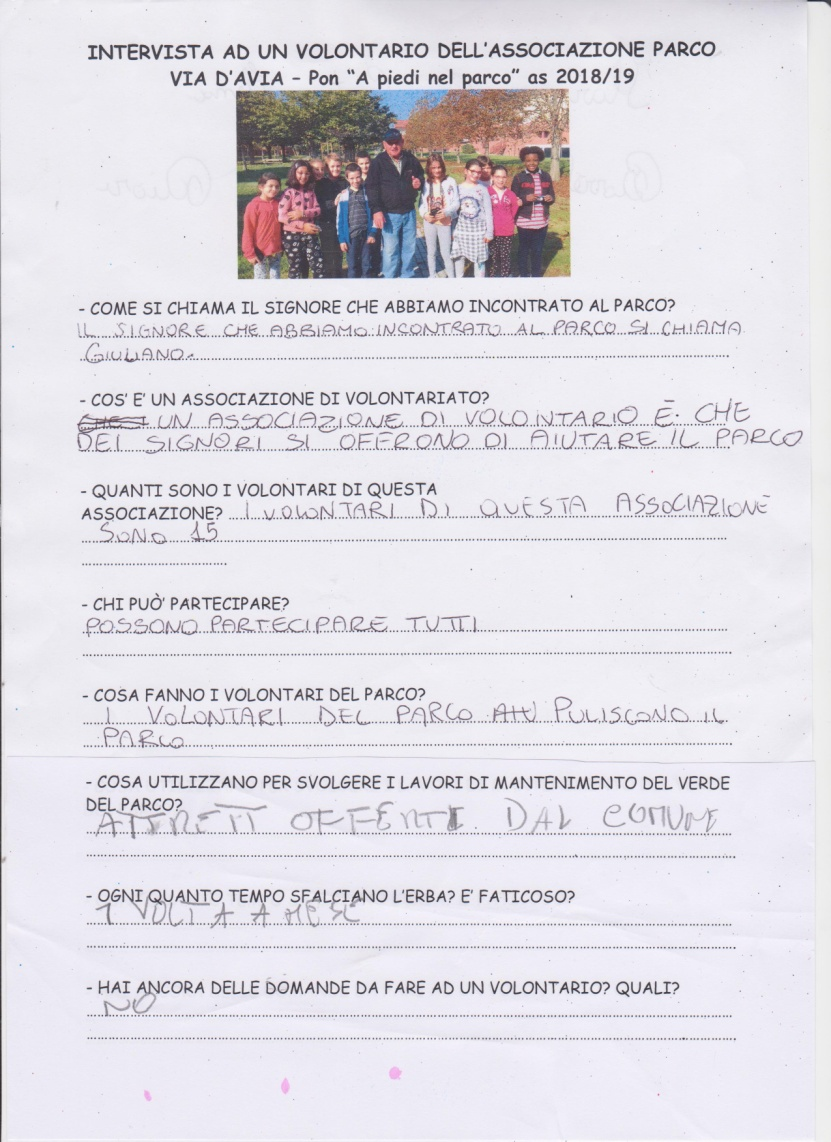 INTERVISTA AD UN VOLONTARIO DELL'ASSOCIAZIONE PARCO
VIA D'AVIA – Pon "A piedi nel parco" as 2018/19
- COME SI CHIAMA IL SIGNORE CHE ABBIAMO INCONTRATO AL PARCO?
IL SIGNORE CHE ABBIAMO INCONTRATO AL PARCO SI CHIAMA
GIULIANO.
- COS' E' UN ASSOCIAZIONE DI VOLONTARIATO?
UN ASSOCIAZIONE DI VOLONTARIO È CHE
DEI SIGNORI SI OFFRONO DI AIUTARE IL PARCO
- QUANTI SONO I VOLONTARI DI QUESTA
ASSOCIAZIONE? I VOLONTARI DI QUESTA ASSOCIAZIONE
SONO 15
- CHI PUÒ' PARTECIPARE?
POSSONO PARTECIPARE TUTTI
- COSA FANNO I VOLONTARI DEL PARCO?
I VOLONTARI DEL PARCO PULISCONO IL
PARCO
- COSA UTILIZZANO PER SVOLGERE I LAVORI DI MANTENIMENTO DEL VERDE
DEL PARCO?
OFFERTI DAL COMUNE
- OGNI QUANTO TEMPO SFALCIANO L'ERBA? E' FATICOSO?
1 VOLTA A MESE
- HAI ANCORA DELLE DOMANDE DA FARE AD UN VOLONTARIO? QUALI?
NO